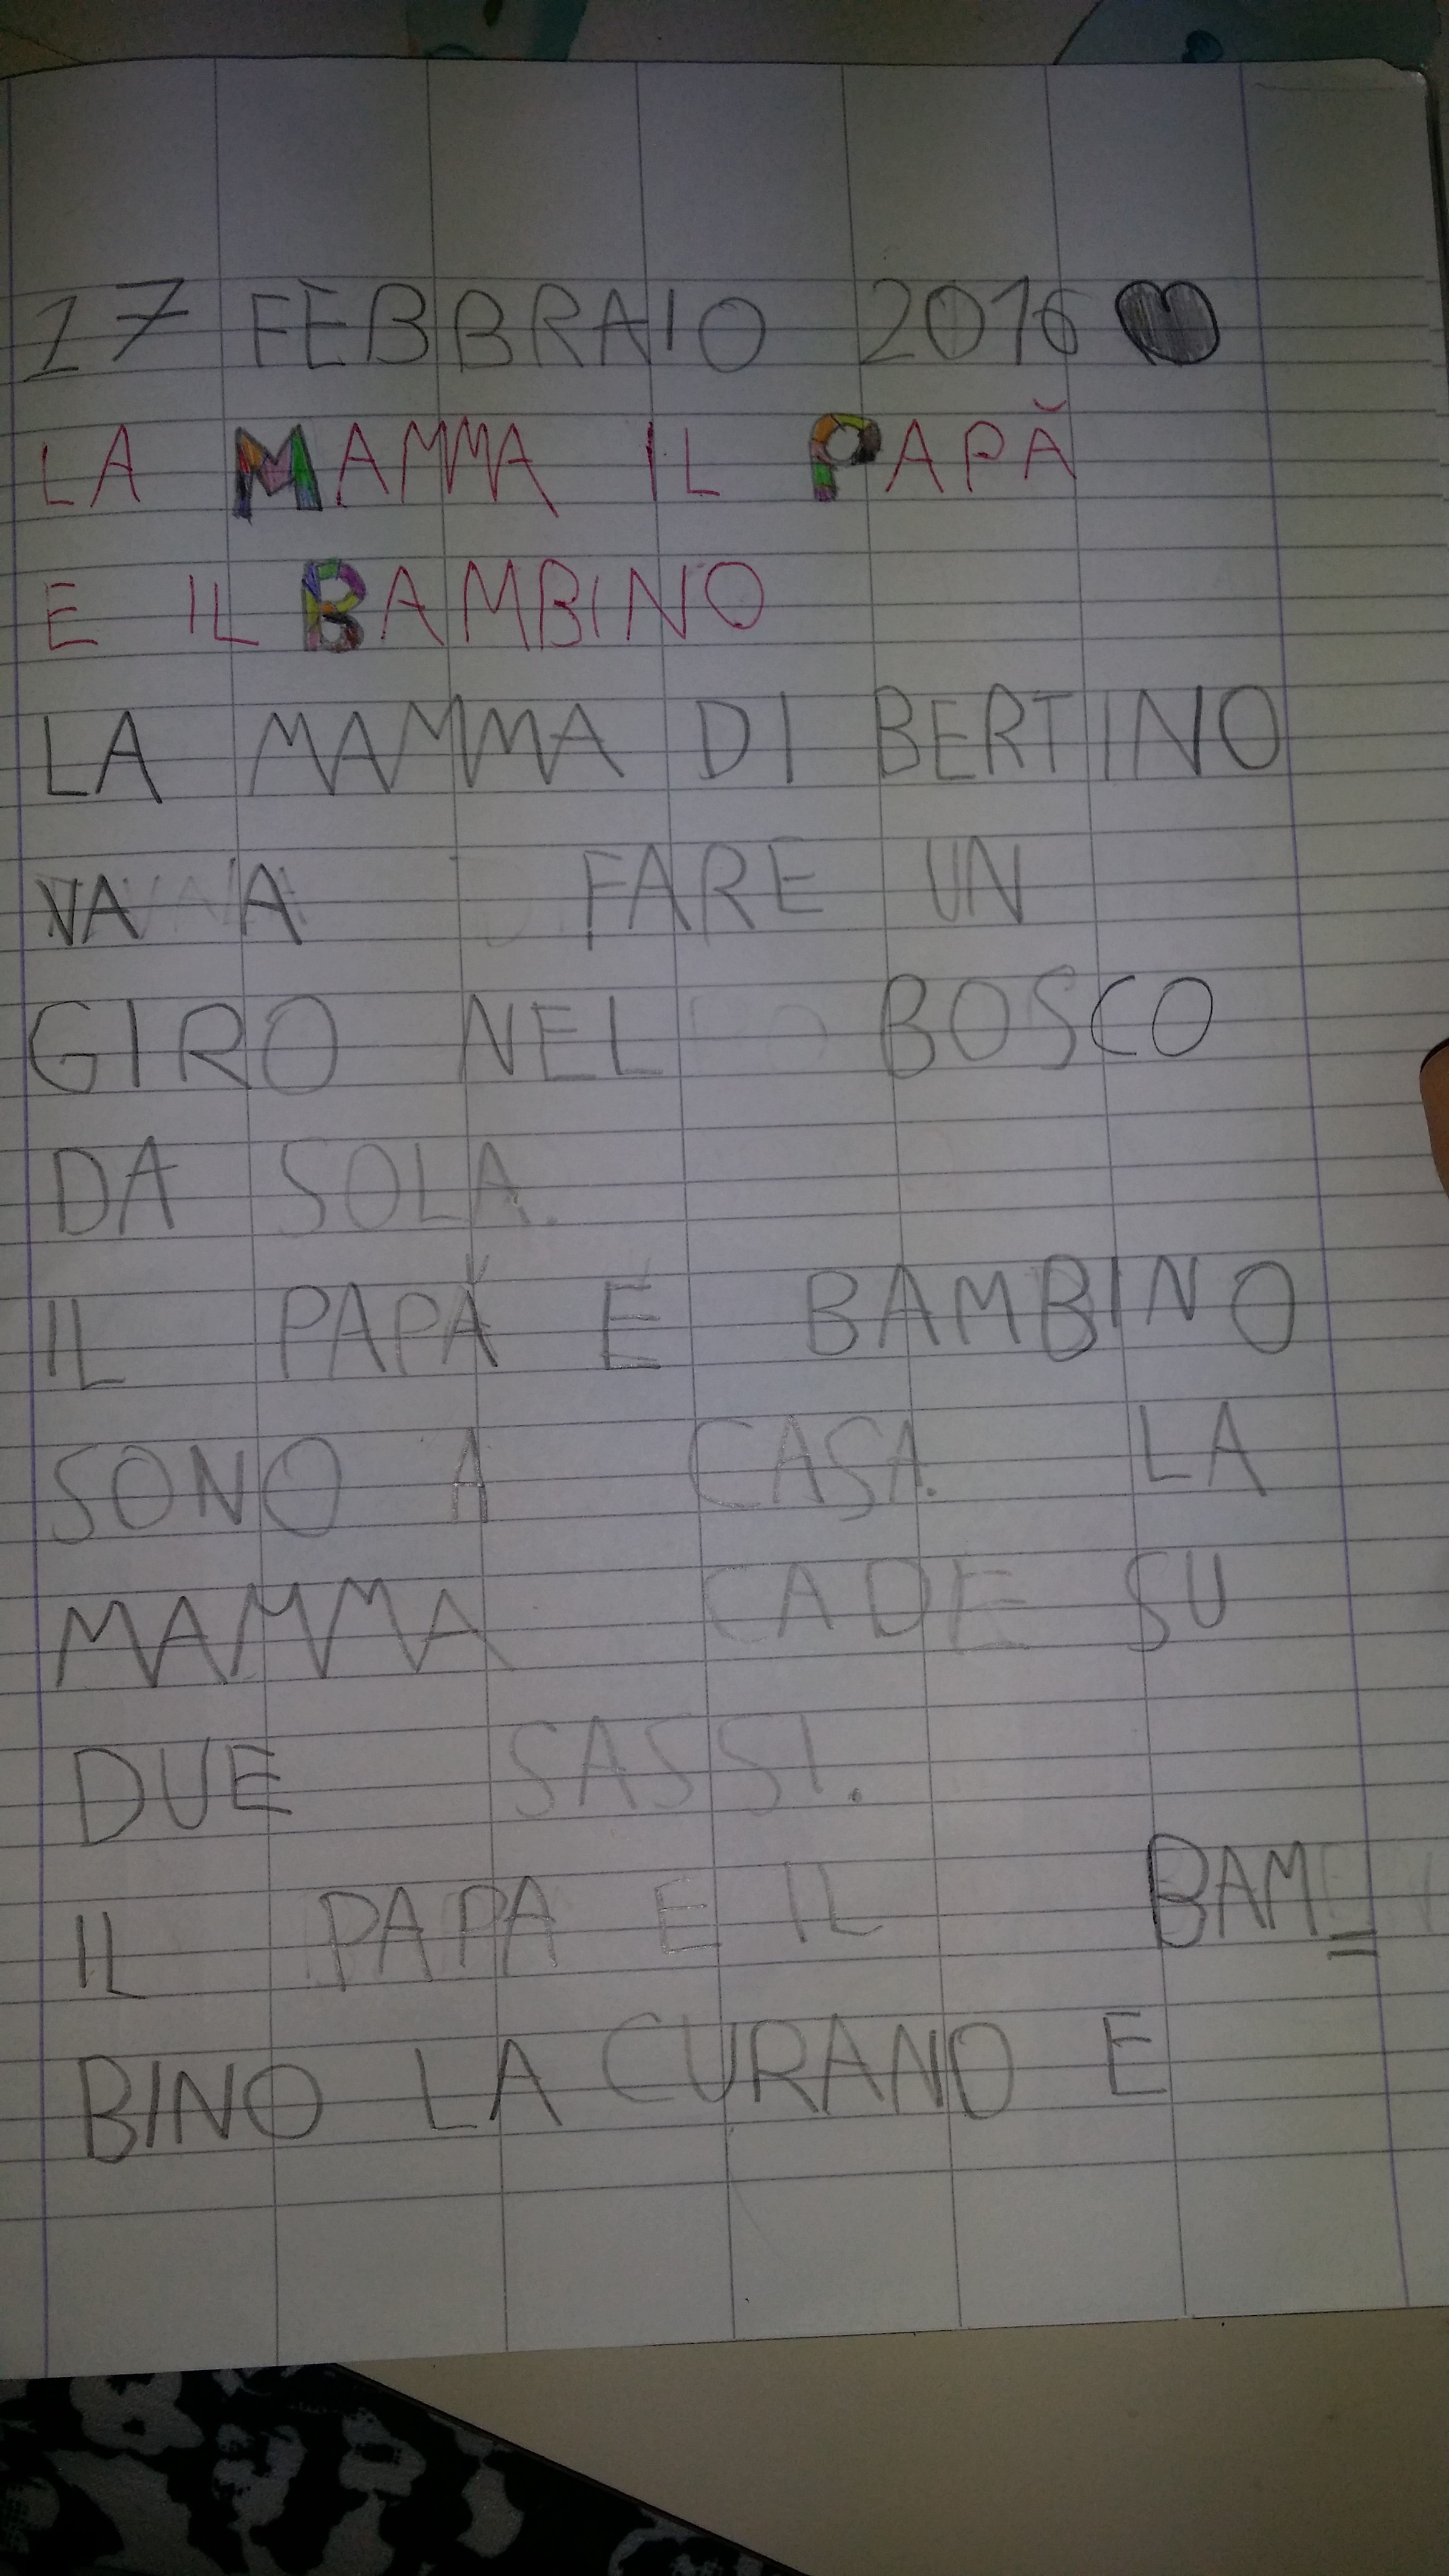 17 FEBBRAIO 2016
LA MAMMA IL PAPĂ
E IL BAMBINO
LA MAMMA DI BERTINO
VA A FARE UN
GIRO NEL BOSCO
DA SOLA.
IL PAPĂ E BAMBINO
SONO A CASA. LA
MAMMA CADE SU
DUE SASSI.
IL PAPA E IL BAM=
BINO LA CURANO E